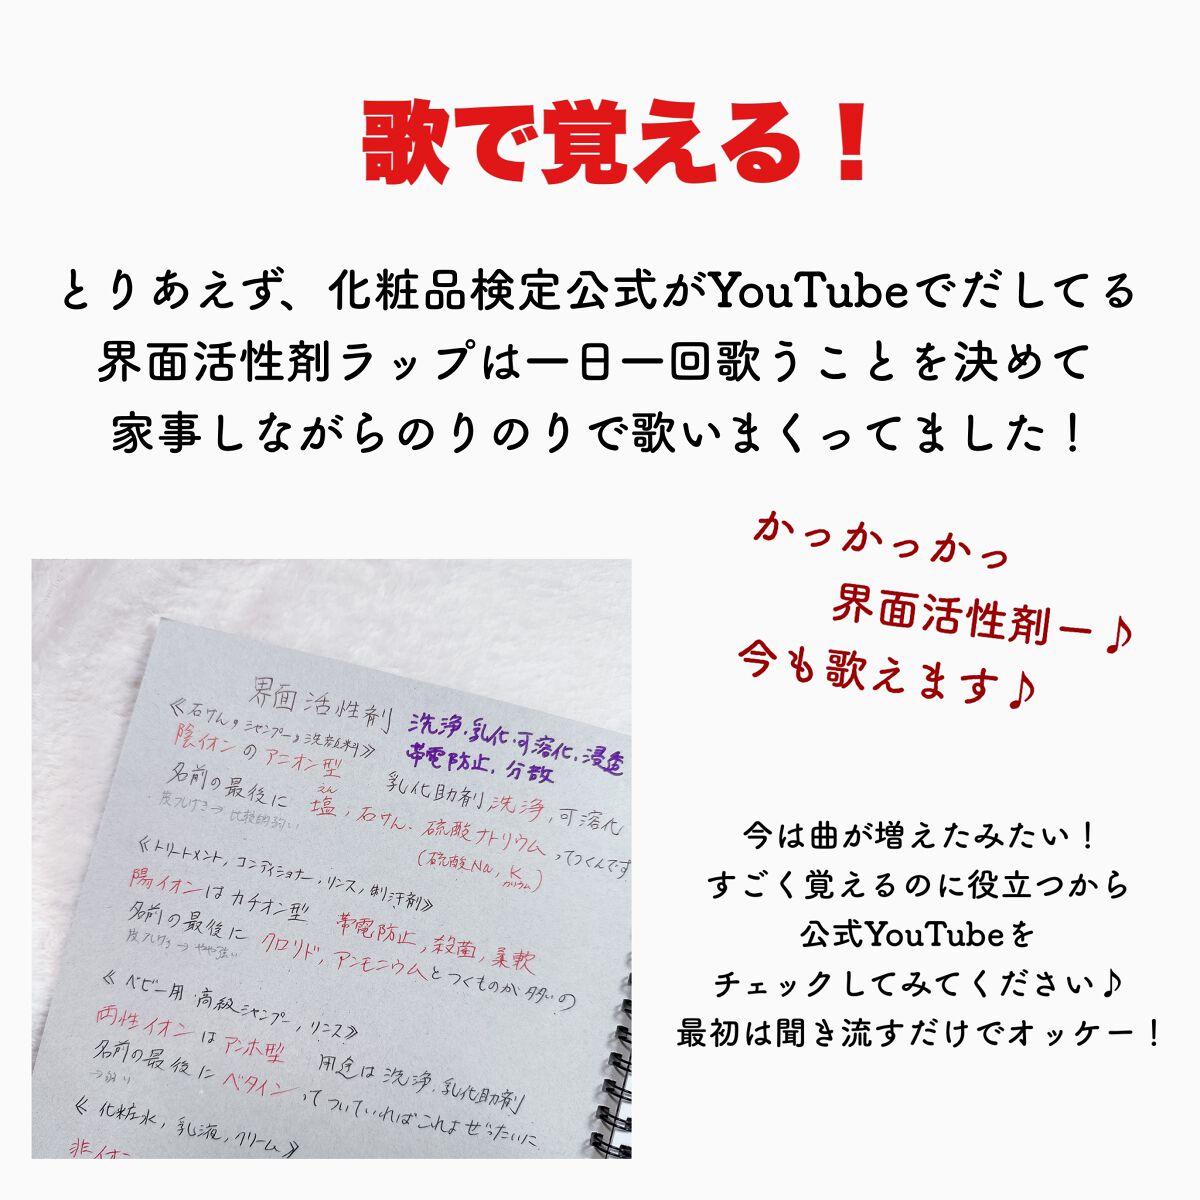 歌で覚える！
とりあえず、化粧品検定公式がYouTubeでだしてる
界面活性剤ラップは一日一回歌うことを決めて
家事しながらのりのりで歌いまくってました！
かっかっかっ
界面活性剤ー♪
今も歌えます♪
今は曲が増えたみたい！
すごく覚えるのに役立つから
公式YouTubeを
チェックしてみてください♪
最初は聞き流すだけでオッケー！
界面活性剤
洗浄・乳化・可溶化、浸透
帯電防止、分散
《石けん, シャンプー, 洗顔料》
陰イオンのアニオン型
乳化助剤, 洗浄, 可溶化
名前の最後に 塩, 石けん、硫酸ナトリウムってつくんです
えん
皮フしげき→比較的弱い
(硫酸Na, K)
カリウム
《トリートメント, コンディショナー, リンス, 制汗剤》
陽イオンはカチオン型 帯電防止, 殺菌, 柔軟
名前の最後に クロリド, アンモニウムとつくものが多いの
皮フしげき→やや強い
《ベビー用・高級シャンプー, リンス》
両性イオンはアンホ型 用途は洗浄、乳化助剤
名前の最後に ベタインってついていればこれよぜったいに
→弱い
《化粧水, 乳液, クリーム》
非イオン